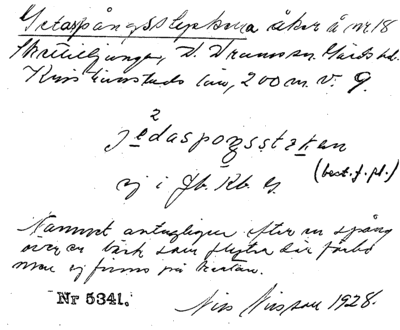 Getaspångsstyckena åker å nr 18
Skretteljunga, V. Vram sn. Gärds hd.
Kristianstads län, 200 m. v. G.
2
jedaspoŋsstakan
(best. f. pl.)
ej i Jb. Kb. G.
Namnet antagligen efter en spång
över en bäck som flyter där förbi
men ej finns på kartan.
Nr 5341. Nils Nilsson 1928.